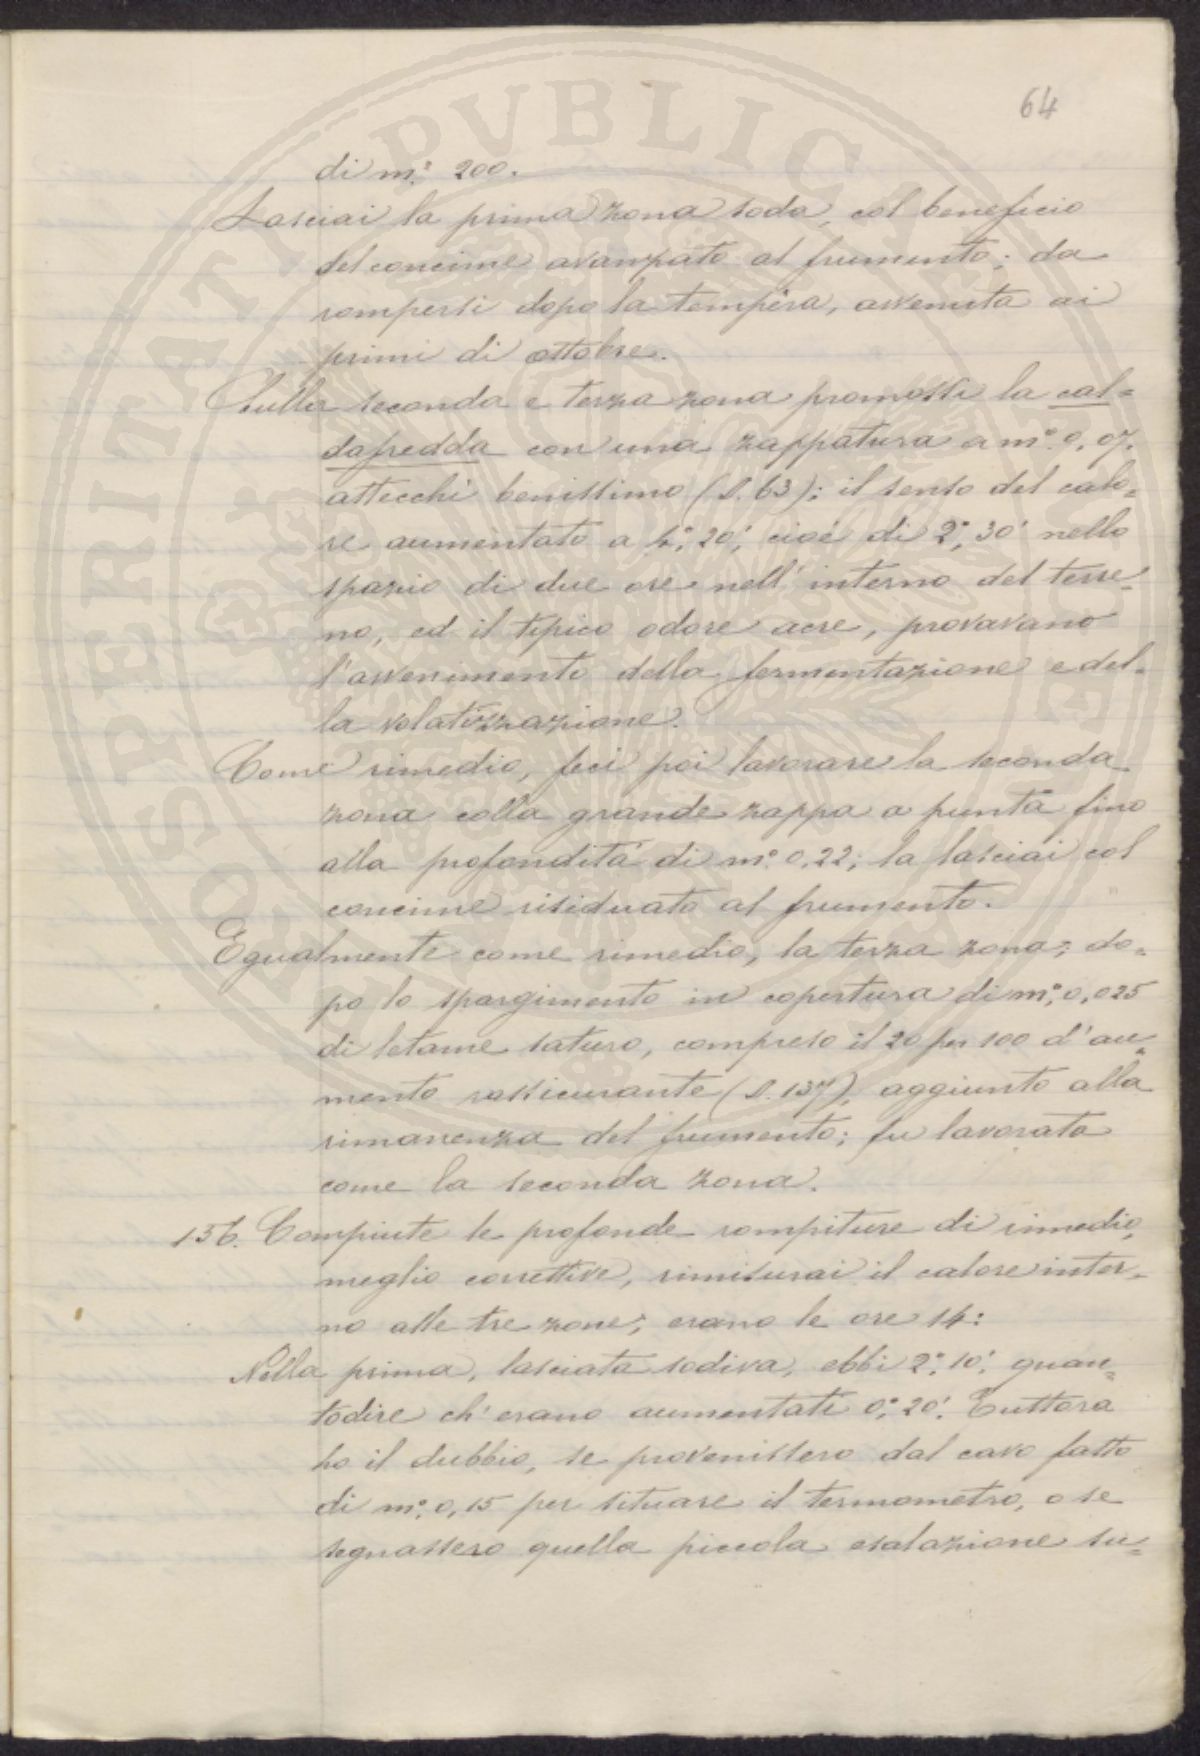 64
di m.º 200.
Lasciai la prima zona soda, col beneficio
del concime avanzato al frumento; da
rompersi dopo la tempèra, avvenuta ai
primi di ottobre.
Sulla seconda e terza zona promossi la cal-
dafredda con una zappatura a m.º 0,07.
attecchì benissimo (§. 63); il senso del calo-
re aumentato a 4.º 20', cioè di 2.º 30' nello
spazio di due ore nell'interno del terre-
no, ed il tipico odore acre, provavano
l'avvenimento della fermentazione e del-
la volatizzazione.
Come rimedio, feci poi lavorare la seconda
zona colla grande zappa a punta fino
alla profondità di m.º 0,22; la lasciai col
concime risiduato al frumento.
Egualmente come rimedio, la terza zona; do-
po lo spargimento in copertura di m.º 0,025
di letame saturo, compreso il 20 per 100 d'au-
mento rassicurante (§. 137), aggiunto alla
rimanenza del frumento; fu lavorata
come la seconda zona.
156. Compiute le profonde rompiture di rimedio,
meglio correttive, rimisurai il calore inter-
no alle tre zone; erano le ore 14:
Nella prima, lasciata sodiva, ebbi 2.º 10'; quan-
todire ch'erano aumentati 0.º 20'. Tuttora
ho il dubbio, se provenissero dal cavo fatto
di m.º 0,15 per situare il termometro, o se
segnassero quella piccola esalazione su-
PROSPERITATI PVBLICAE AVGENDAE